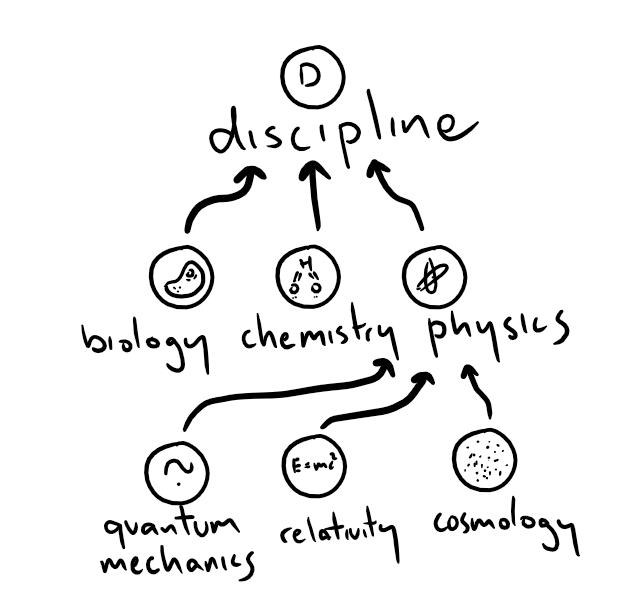 D
discipline
H
biology chemistry physics
?
E=mc²
quantum
mechanics
relativity
cosmology